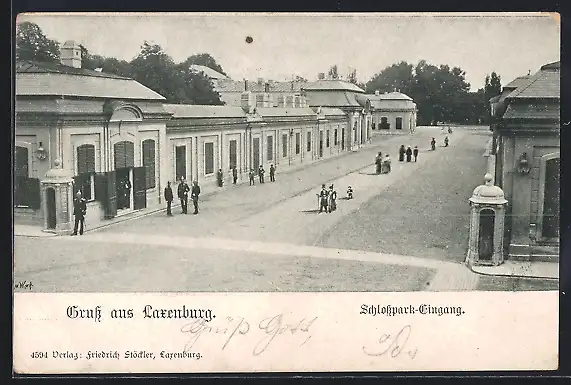 Gruß aus Laxenburg.
Schloßpark-Eingang.
Grüß Gott,
4594 Verlag: Friedrich Stöckler, Laxenburg.